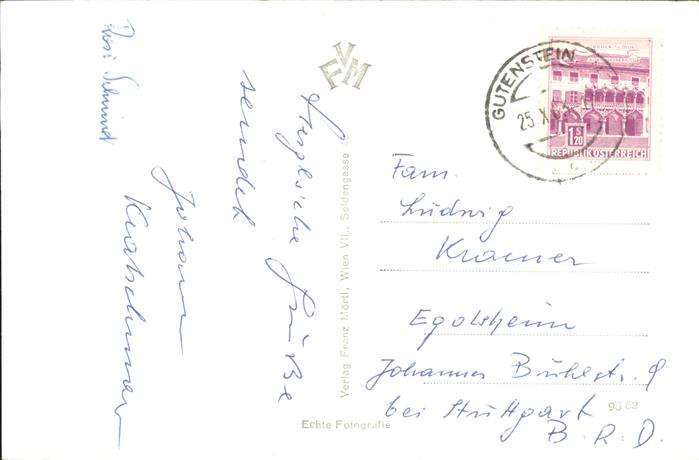 Herzliche Grüße
sendet
Johann
Rosi Schmid
FVM
Verlag Franz Mörtl, Wien VII., Seidengasse
Echte Fotografie
GUTENSTEIN
25.X.63
1 S 20
REPUBLIK ÖSTERREICH
Fam.
Ludwig
Kramer
Egolsheim
Johannes Buhlstr. 9
bei Stuttgart
B.R.D.